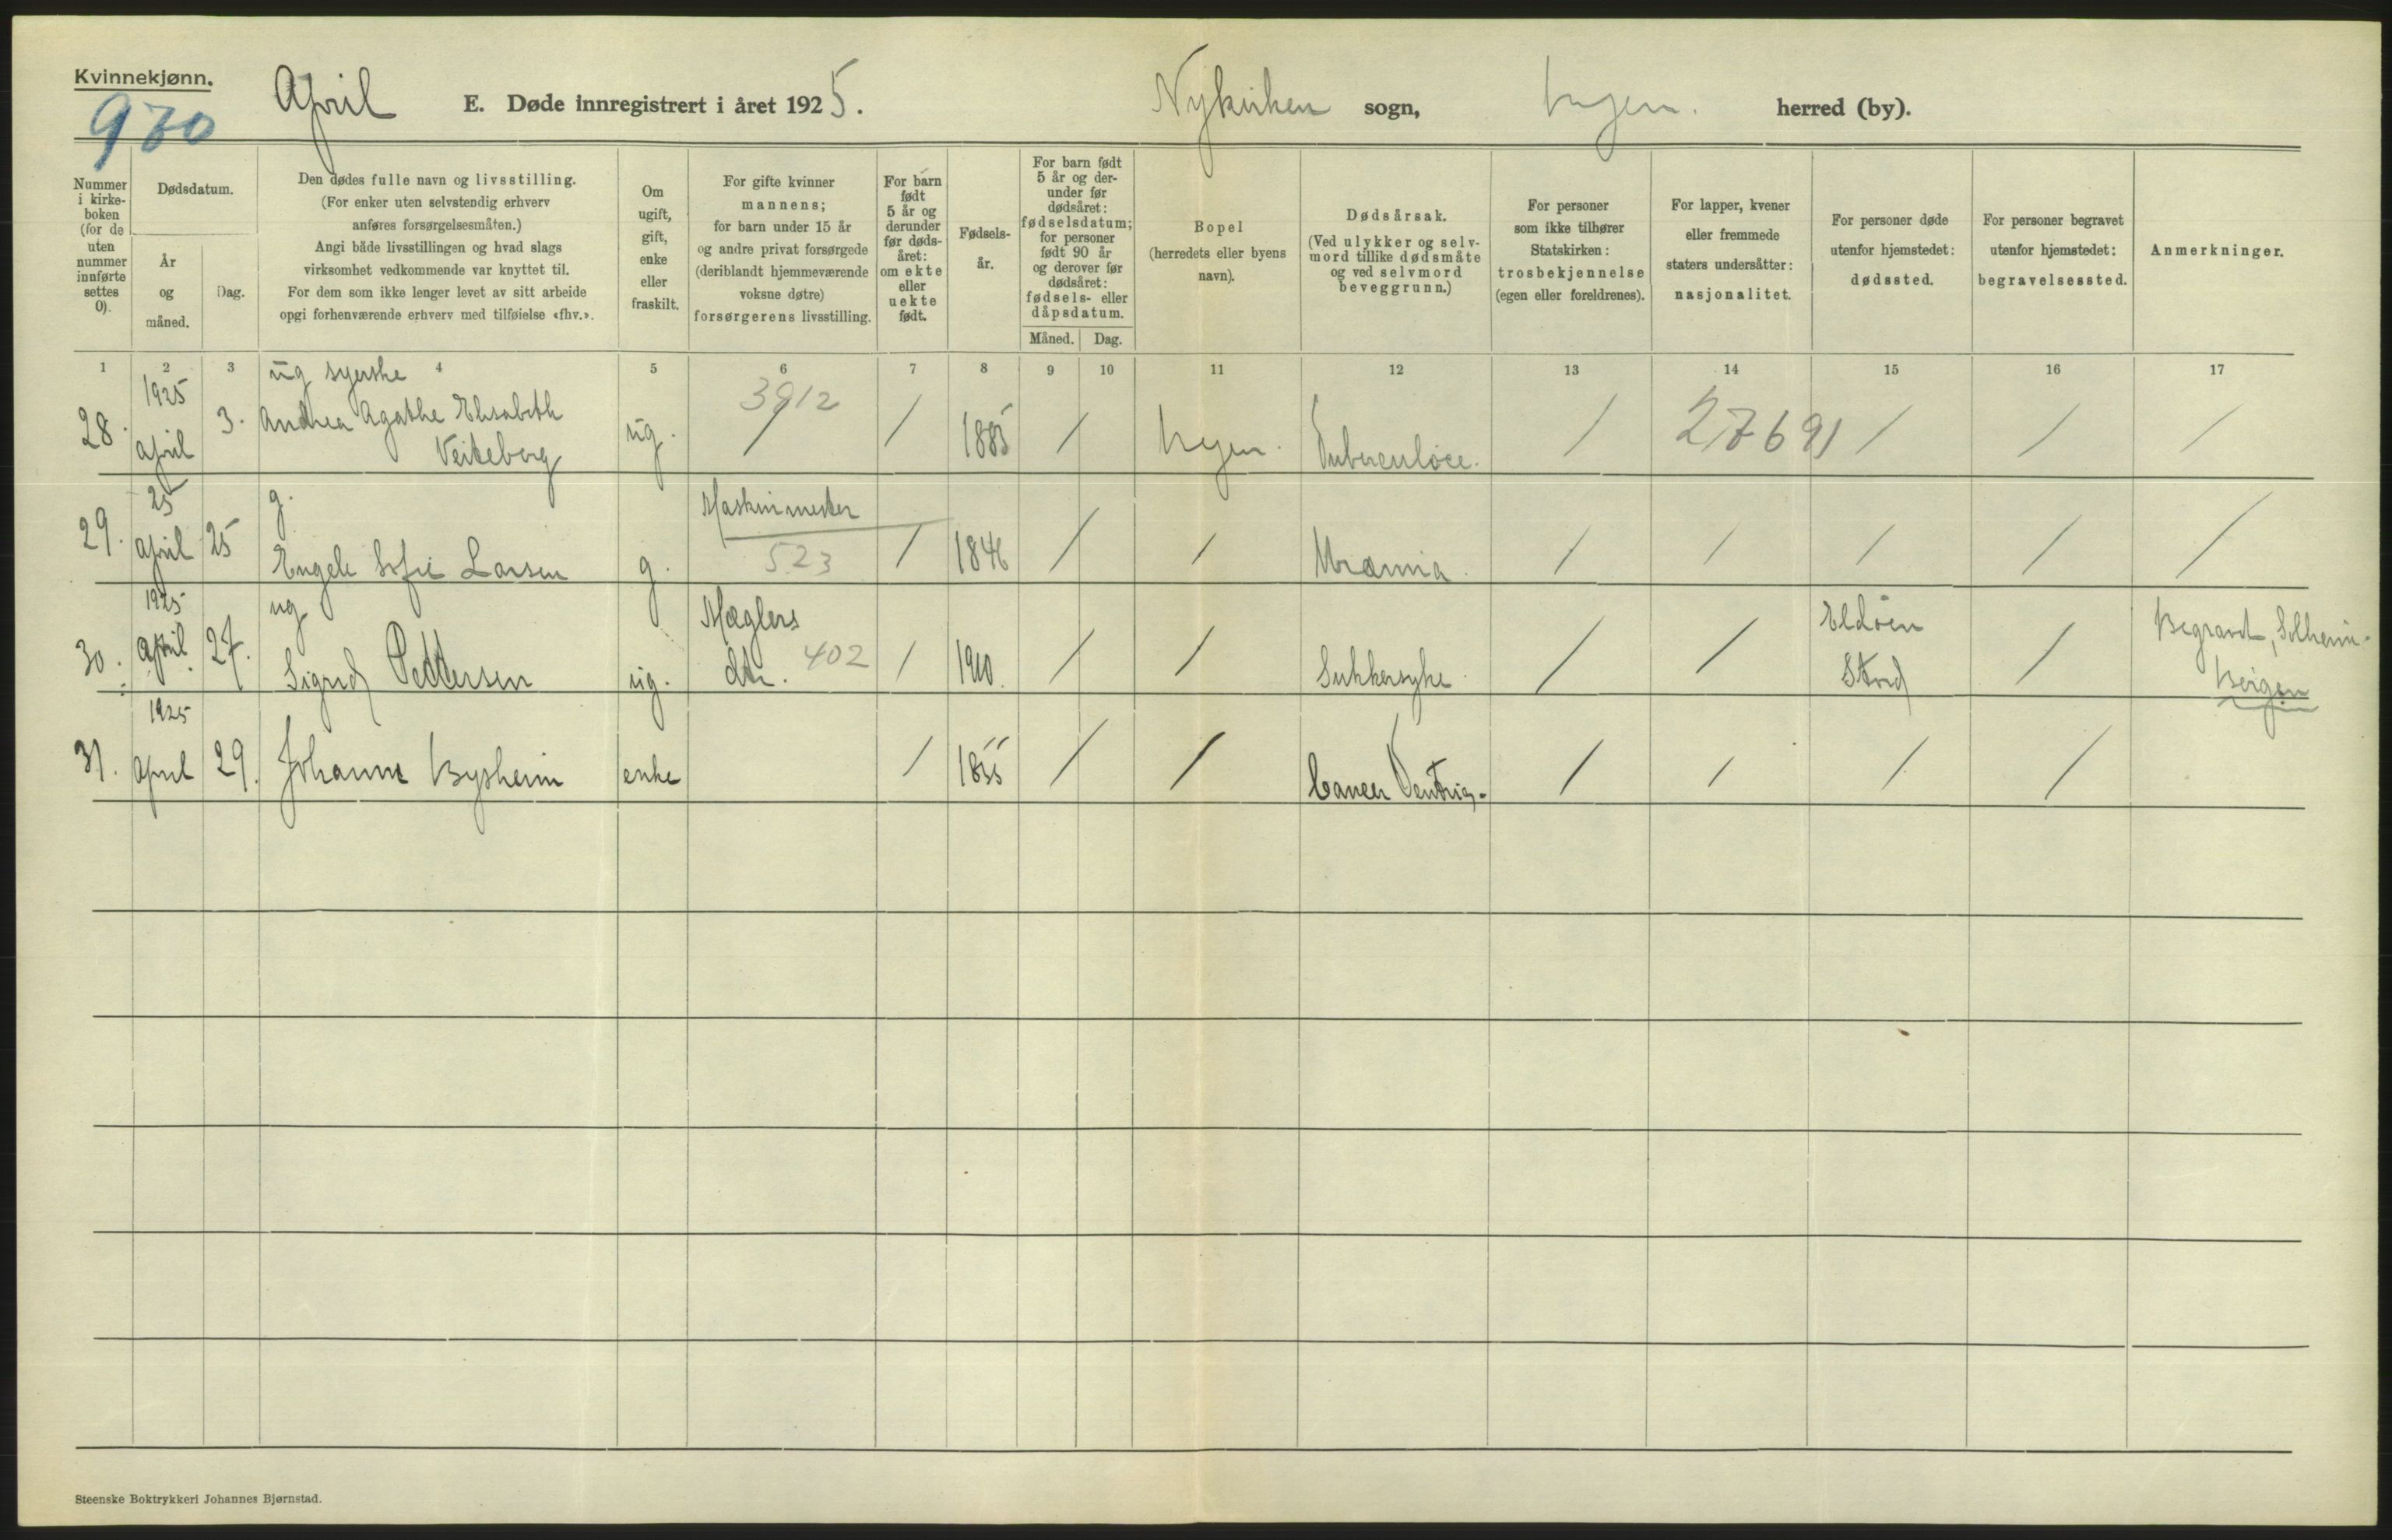 Kvinnekjønn.
970
April E. Døde innregistrert i året 1925. Nykirken sogn, Bergen. herred (by).
Nummer i kirke-boken (for de uten nummer innførte settes 0).
Dødsdatum.
År og måned.
Dag.
Den dødes fulle navn og livsstilling.
(For enker uten selvstendig erhverv
anføres forsørgelsesmåten.)
Angi både livsstillingen og hvad slags
virksomhet vedkommende var knyttet til.
For dem som ikke lenger levet av sitt arbeide
opgi forhenværende erhverv med tilføielse «fhv.».
Om
ugift,
gift,
enke
eller
fraskilt.
For gifte kvinner
mannens;
for barn under 15 år
og andre privat forsørgede
(deriblandt hjemmeværende
voksne døtre)
forsørgerens livsstilling.
For barn
født
5 år og
derunder
før døds-
året:
om ekte
eller
uekte
født.
Fødsels-
år.
For barn født
5 år og der-
under før
dødsåret:
fødselsdatum;
for personer
født 90 år
og derover før
dødsåret:
fødsels- eller
dåpsdatum.
Måned. Dag.
Bopel
(herredets eller byens
navn).
Dødsårsak.
(Ved ulykker og selv-
mord tillike dødsmåte
og ved selvmord
beveggrunn.)
For personer
som ikke tilhører
Statskirken:
trosbekjennelse
(egen eller foreldrenes).
For lapper, kvener
eller fremmede
staters undersåtter:
nasjonalitet.
For personer døde
utenfor hjemstedet:
dødssted.
For personer begravet
utenfor hjemstedet:
begravelsessted.
Anmerkninger.
1 2 3 4 5 6 7 8 9 10 11 12 13 14 15 16 17
ug syerske
1925 3912
28. April 3. Andrea Agathe Elisabeth ug. / / 1885 / Bergen. Tuberculose. / 27691 / / /
Veiteberg
25 g. Maskinmester
29. April 25 Engele Sofie Larsen g. 523 / 1846 / / Uræmia. / / / / /
1925 ug Mæglers Eldøen Begravet, Solheim-
30. April 27. Sigrid Pettersen ug. dtr. 402 / 1910. / / Sukkersyke. / / Stord / Bergen
1925
31. April 29. Johanne Bysheim enke / 1855 / / Cancer Ventric. / / / /
Steenske Boktrykkeri Johannes Bjørnstad.